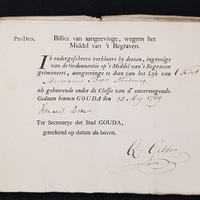 Pro Deo.
Billiet van aangeevinge, wegens het
Middel van 't Begraven.
Ik ondergeschreven verklaare by deezen, ingevolge
van de Ordonnantie op 't Middel van 't Begraven
geëmaneert, aangevinge te doen van het Lyk van
als gehoorende onder de Classe van d' onvermogende.
Gedaan binnen GOUDA, den 10 May 1789
Ter Secretarye der Stad GOUDA,
geteekend op datum als boven.